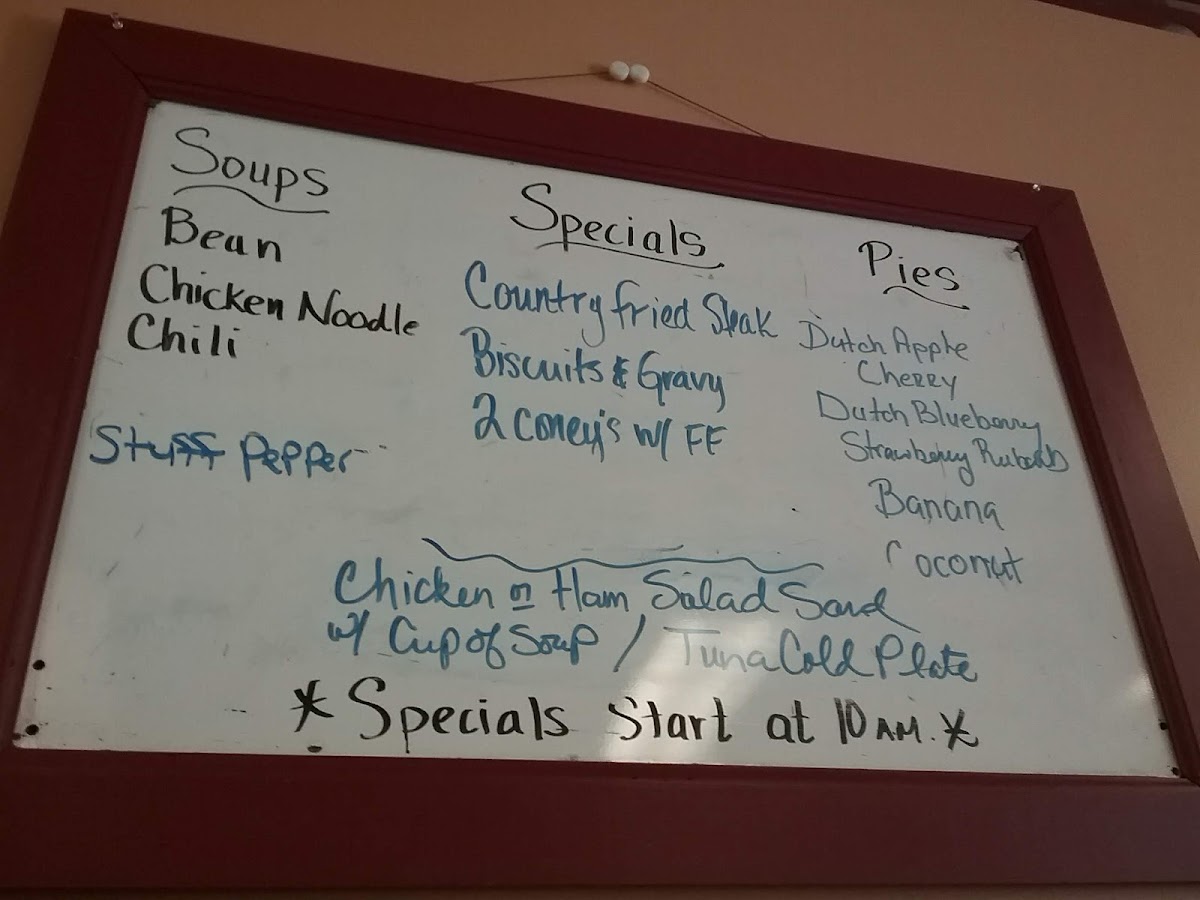 Soups
Bean
Chicken Noodle
Chili
Stuff Pepper
Specials
Country fried Steak
Biscuits & Gravy
2 coney's w/ FF
Pies
Dutch Apple
Cherry
Dutch Blueberry
Strawberry Rubarb
Banana
Coconut
Chicken or Ham Salad Sand
w/ Cup of Soup / Tuna Cold Plate
* Specials Start at 10 AM. *